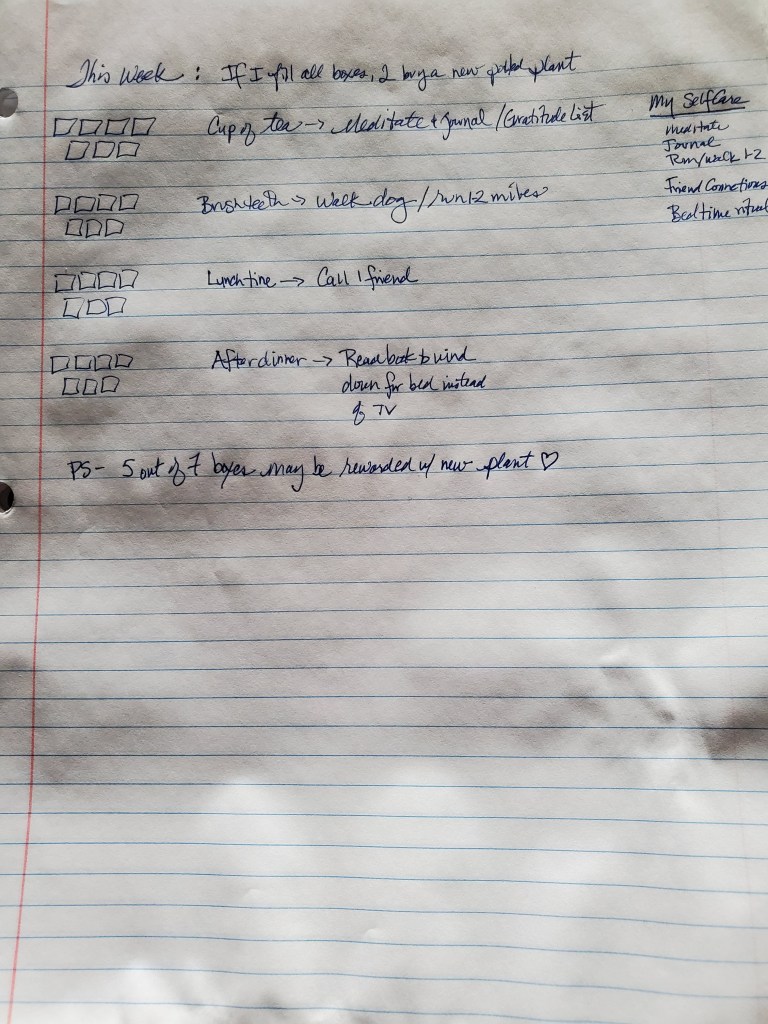 This Week : If I fill all boxes, I buy a new potted plant
Cup of tea → Meditate + Journal / Gratitude List
Brush teeth → Walk dog / run 1-2 miles
Lunchtime → Call 1 friend
After dinner → Read book to wind
down for bed instead
of TV
PS- 5 out of 7 boxes may be rewarded w/ new plant ♡
My SelfCare
Meditate
Journal
Run/walk 1-2
Friend Connections
Bedtime ritual